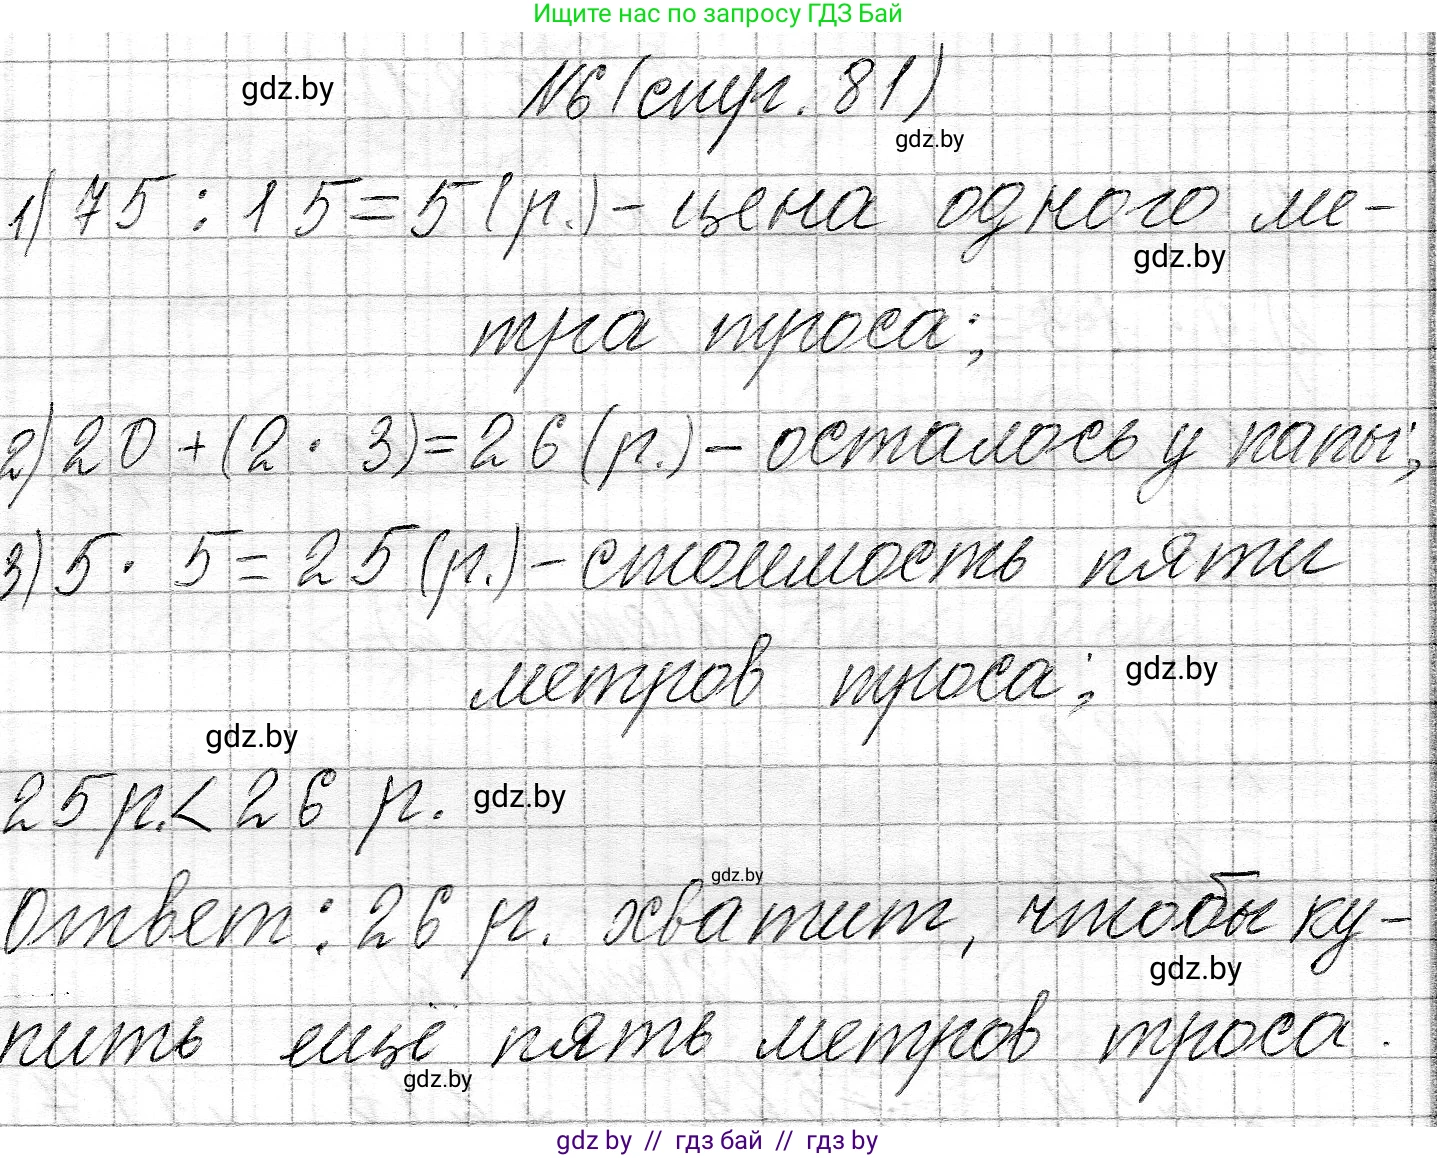 Ищите нас по запросу ГДЗ Бай
gdz.by
№6 (стр. 81)
gdz.by
1) 75 : 15 = 5 (р.) - цена одного ме-
gdz.by
тра троса;
2) 20 + (2 · 3) = 26 (р.) - осталось у папы;
3) 5 · 5 = 25 (р.) - стоимость пяти
метров троса;
gdz.by
gdz.by
25 р. < 26 р.
gdz.by
gdz.by
Ответ: 26 р. хватит, чтобы ку-
gdz.by
пить ещё пять метров троса.
gdz.by
gdz by // гдз бай // гдз by